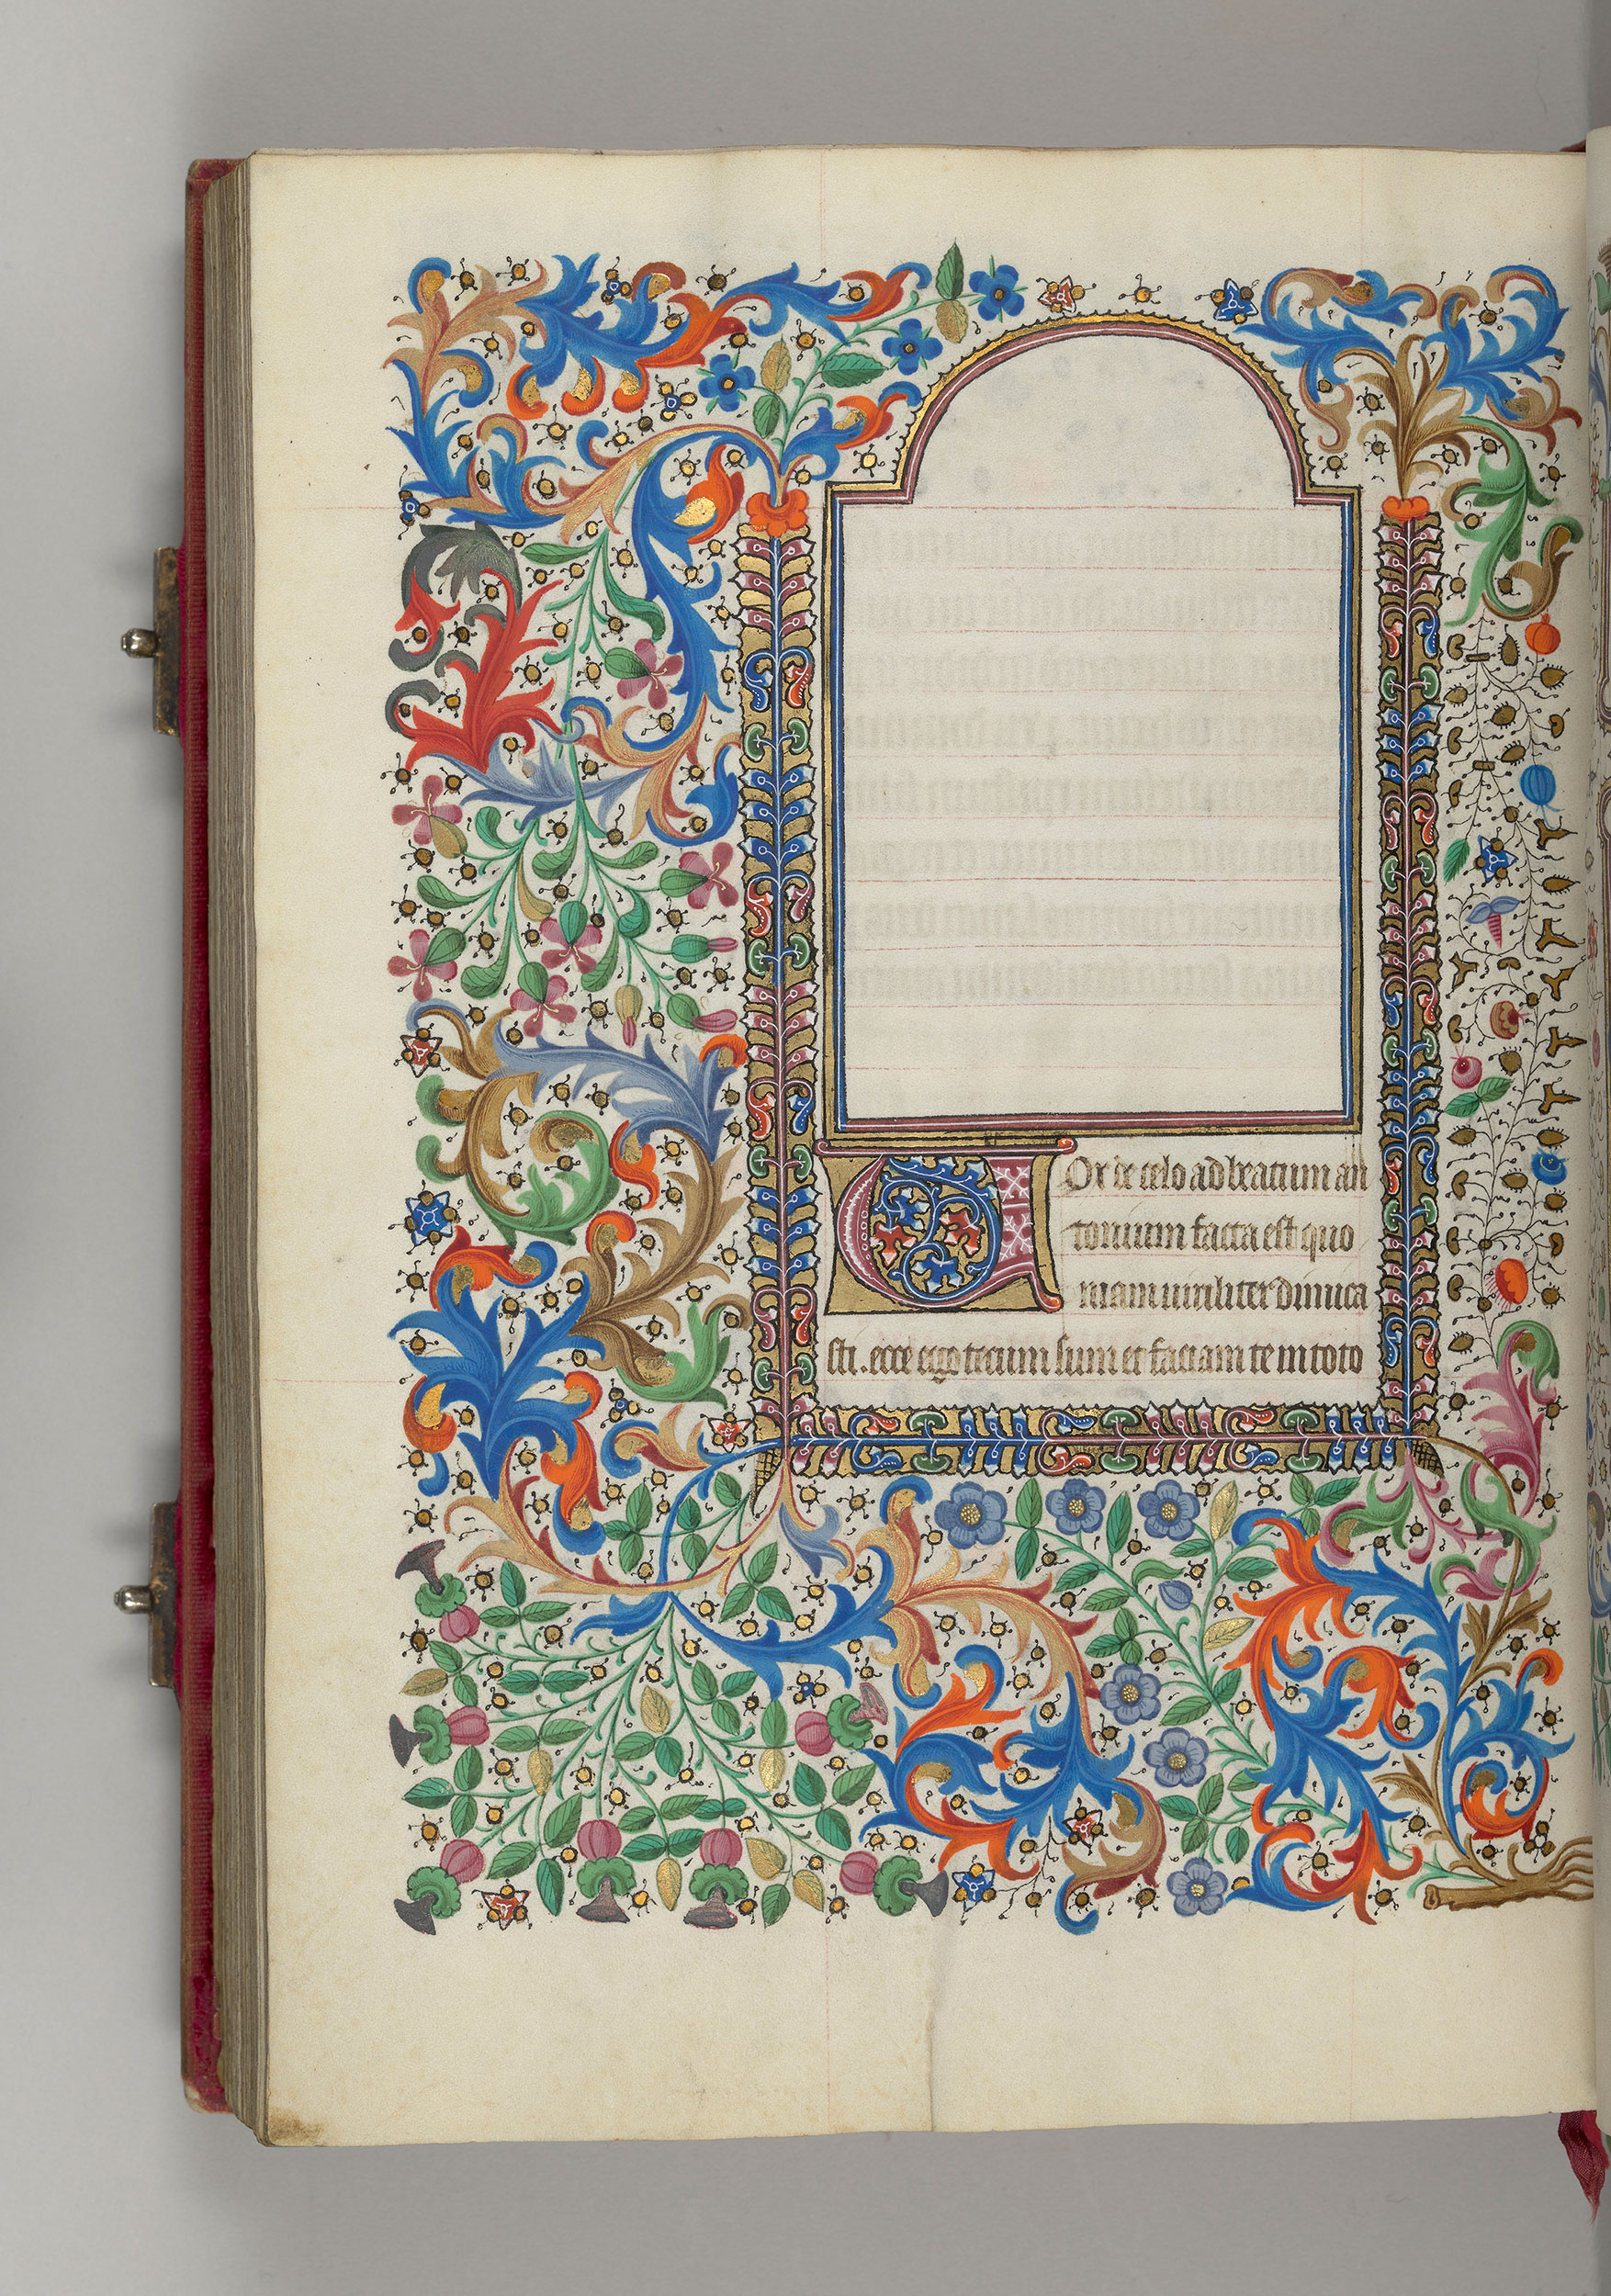 Vox de celo ad beatum an
tonium facta est quo
niam uiriliter dimica
sti. ecce ego tecum sum et faciam te in toto